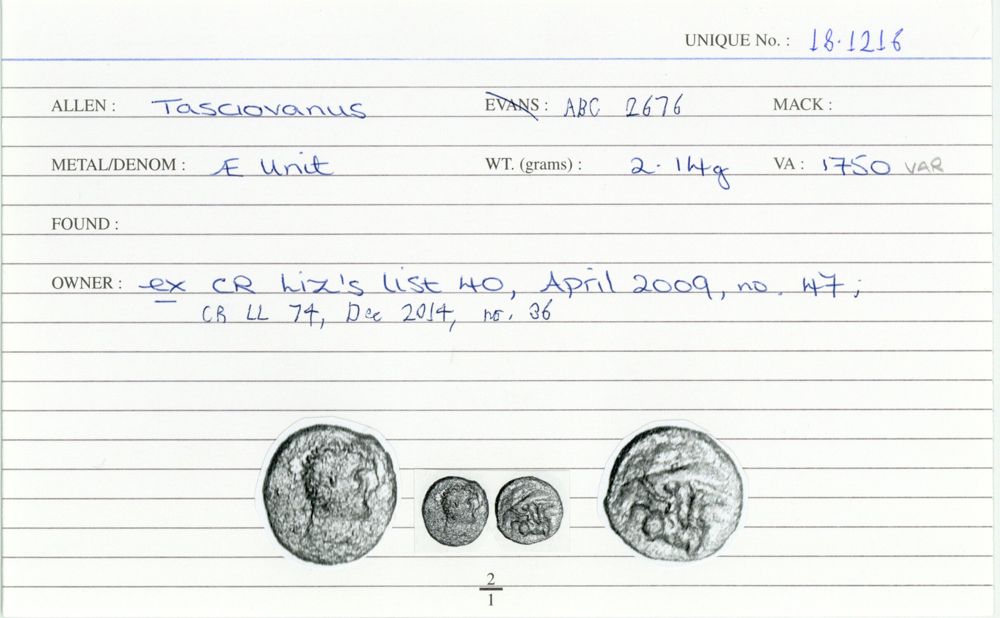 UNIQUE No. : 18.1216
ALLEN : Tasciovanus EVANS : ABC 2676 MACK :
METAL/DENOM : Æ Unit WT. (grams) : 2.14g VA : 1750 VAR
FOUND :
OWNER : ex CR Liz's list 40, April 2009, no. 47;
CR LL 74, Dec 2014, no. 36
2
1